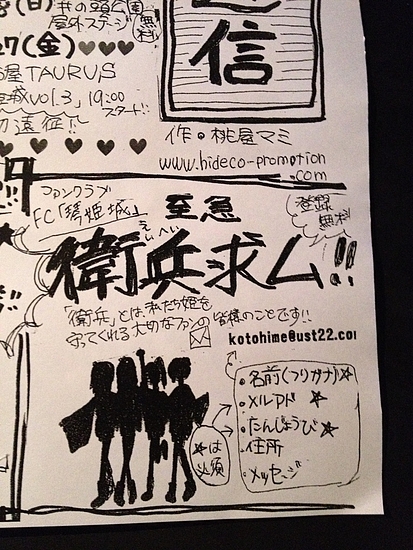 (日) 井の頭公園
屋外ステージ 無料
7(金)♥♥♥
屋TAURUS
vol.3」19:00
スタート!!
遠征!!
信
作・桃屋マミ
www.hideco-promotion
.com
ファンクラブ
FC「琴姫城」
至急
登録
無料
えいへい
衛兵求ム!!
「衛兵」とは、私たち姫を
守ってくれる大切なファンの皆様のことです!!
kotohime@ust22.co
・名前(フリガナ)★
・メルアド ★
・たんじょうび★
・住所
・メッセージ
★は
必須